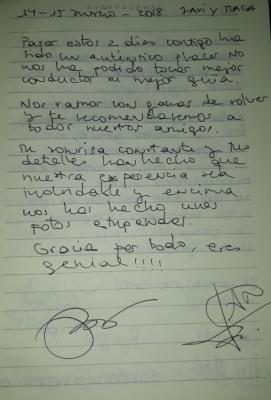 14-15 JUNIO - 2018 JAVI Y
Pasar estos 2 dias contigo ha
sido un auténtico placer No
nos ha podido tocar mejor
conductor ni mejor guía.
Nos vamos con ganas de volver
y te recomendaremos a
todos nuestros amigos.
Tu sonrisa constante y tus
detalles han hecho que
nuestra experiencia sea
inolvidable y encima
nos has hecho unas
fotos estupendas.
Gracias por todo, eres
genial!!!!